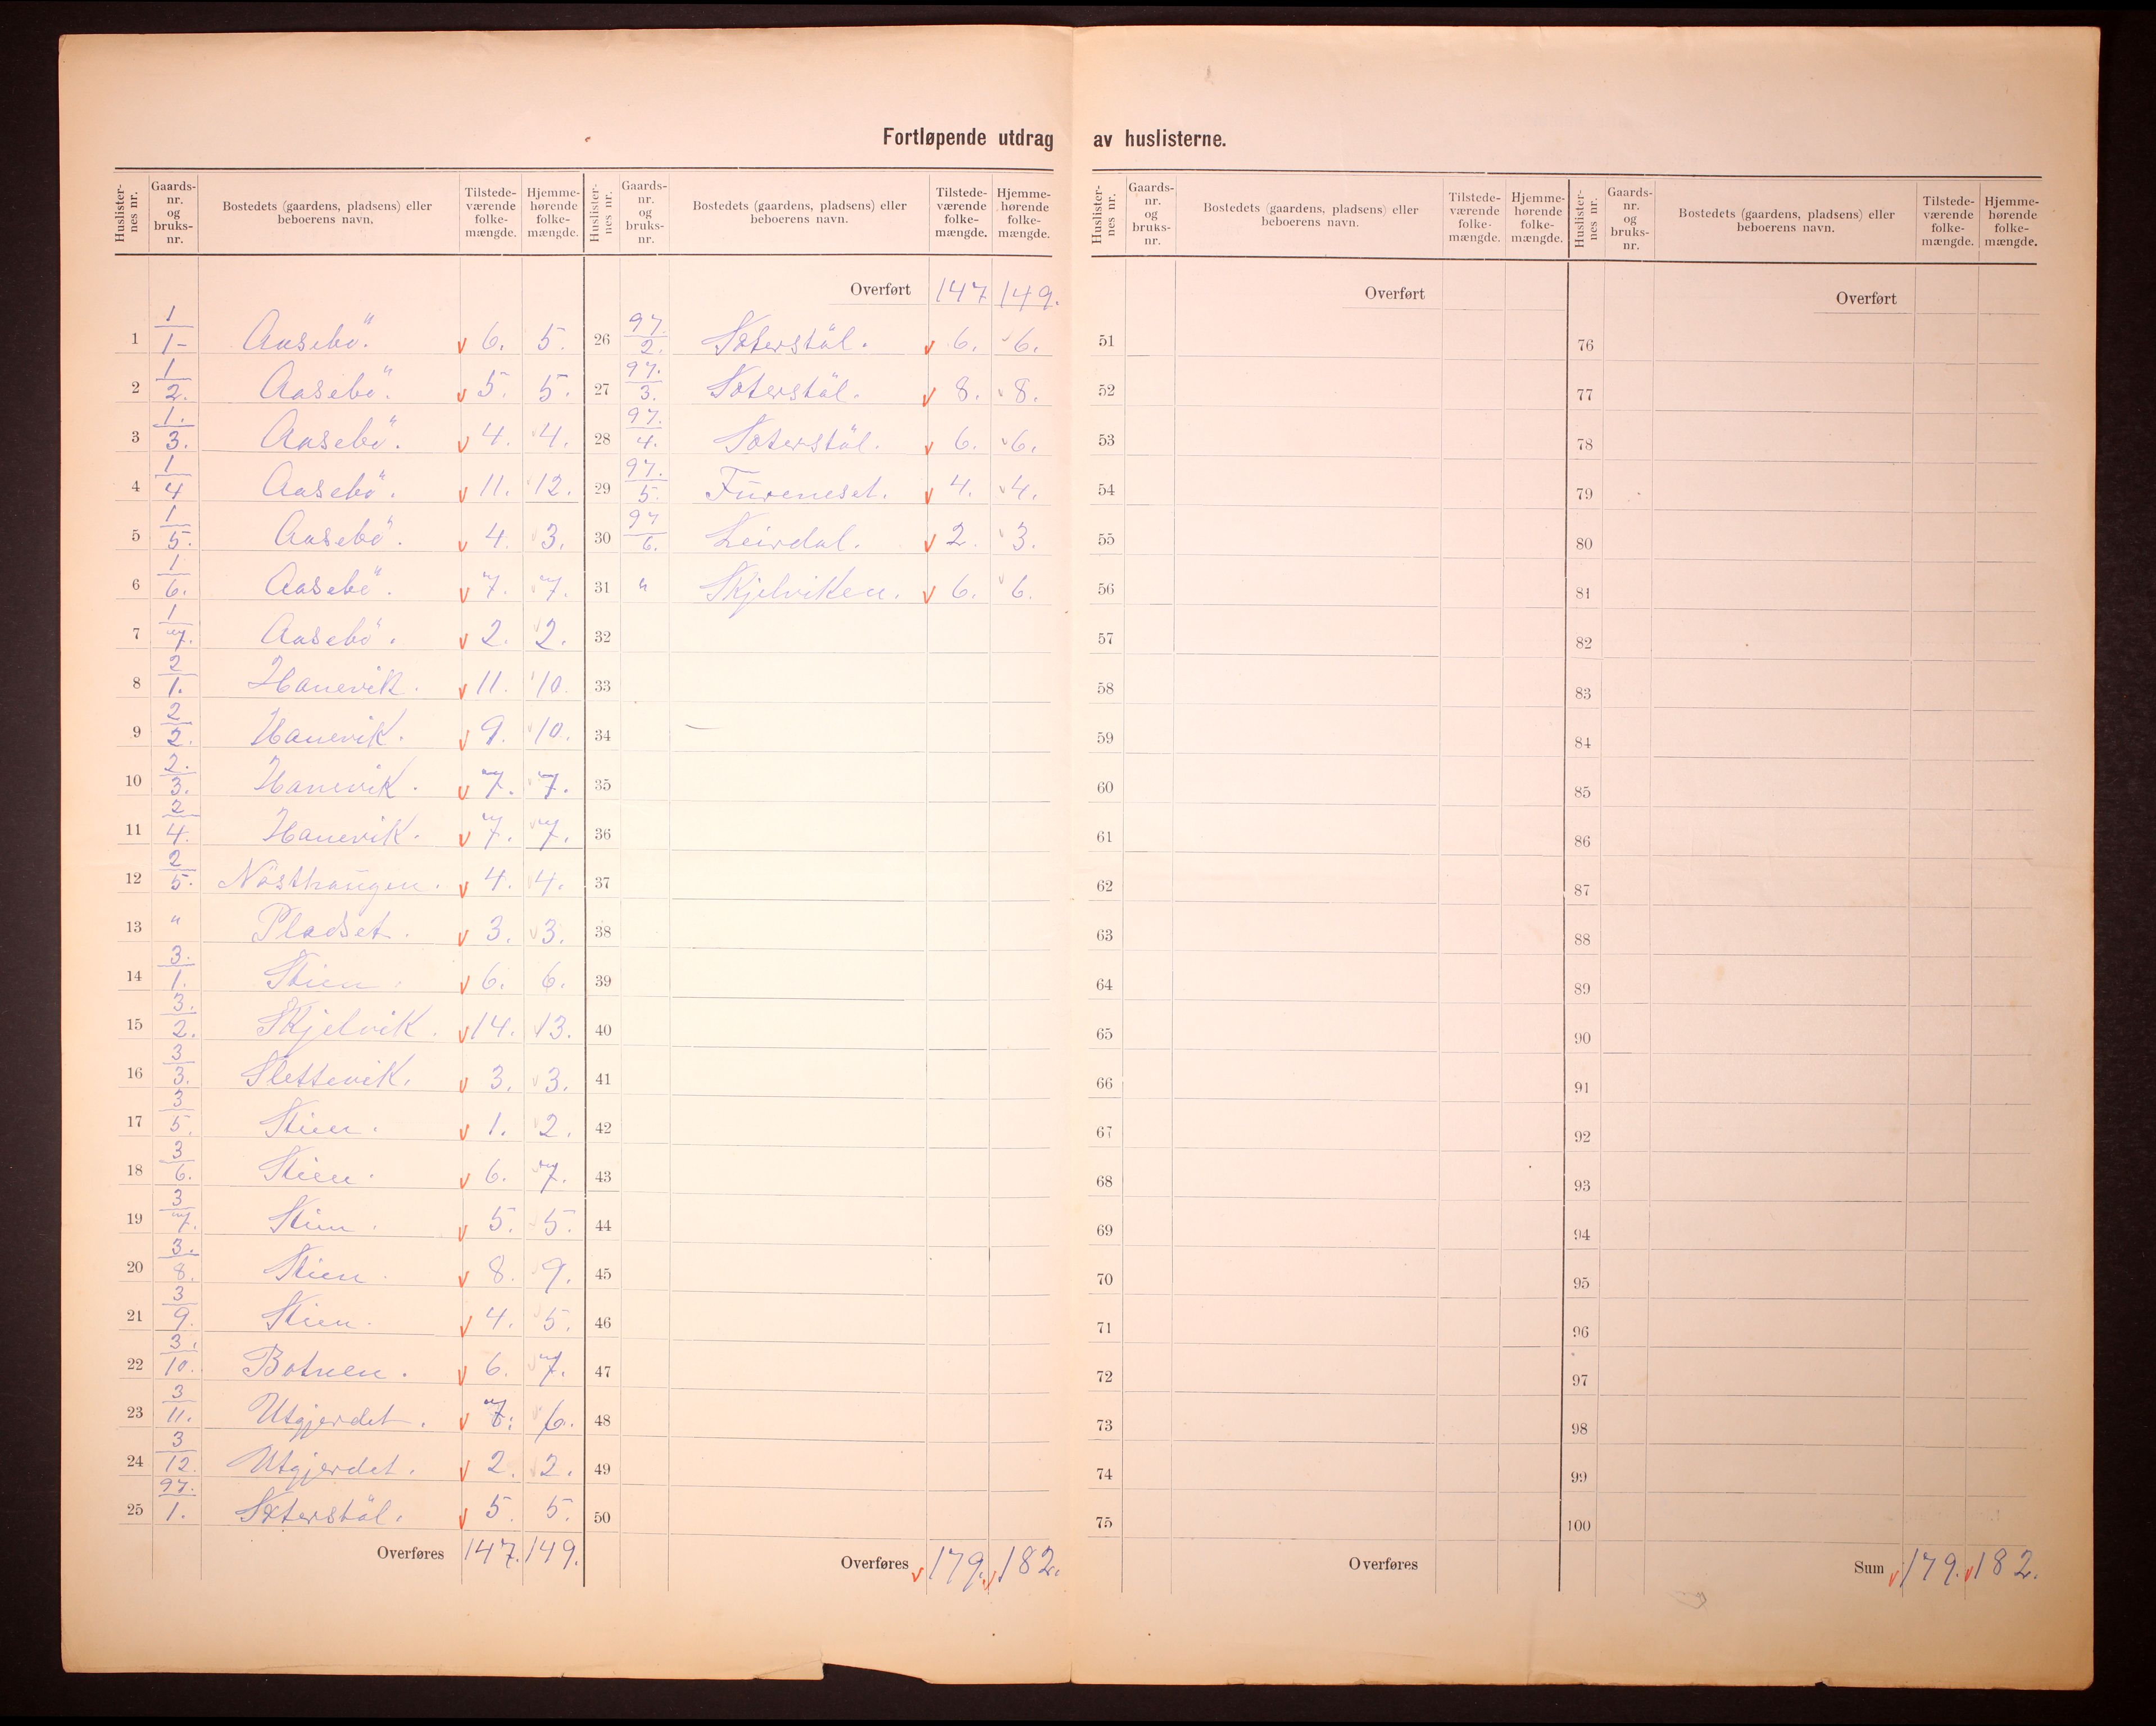 Fortløpende utdrag av huslisterne.
Huslister-nes nr. Gaards-nr. og bruks-nr. Bostedets (gaardens, pladsens) eller beboerens navn. Tilstede-værende folke-mængde. Hjemme-hørende folke-mængde.
1 1/1 Aasebö. 6. 5.
2 1/2. Aasebö. 5. 5.
3 1./3. Aasebö. 4. 4.
4 1/4 Aasebö. 11. 12.
5 1/5. Aasebö. 4. 3.
6 1/6. Aasebö. 7. 7.
7 1/7. Aasebö. 2. 2.
8 2/1. Hanevik. 11. 10.
9 2/2. Hanevik. 9. 10.
10 2./3. Hanevik. 7. 7.
11 2/4. Hanevik. 7. 7.
12 2/5. Nösthaugen. 4. 4.
13 " Pladset. 3. 3.
14 3./1. Stien. 6. 6.
15 3./2. Skjelvik. 14. 13.
16 3/3. Slettevik. 3. 3.
17 3/5. Stien. 1. 2.
18 3/6. Stien. 6. 7.
19 3/7. Stien. 5. 5.
20 3./8. Stien. 8. 9.
21 3/9. Stien. 4. 5.
22 3./10. Botnen. 6. 7.
23 3/11. Utgjerdet. 7. 6.
24 3/12. Utgjerdet. 2. 2.
25 97./1. Sæterstöl. 5. 5.
Overføres 147. 149.
Huslister-nes nr. Gaards-nr. og bruks-nr. Bostedets (gaardens, pladsens) eller beboerens navn. Tilstede-værende folke-mængde. Hjemme-hørende folke-mængde.
Overført 147 149.
26 97./2. Sæterstöl. 6. 6.
27 97./3. Sæterstöl. 8. 8.
28 97./4. Sæterstöl. 6. 6.
29 97./5. Fureneset. 4. 4.
30 97/6. Leirdal. 2. 3.
31 " Skjelviken. 6. 6.
32
33
34
35
36
37
38
39
40
41
42
43
44
45
46
47
48
49
50
Overføres 179. 182.
Huslister-nes nr. Gaards-nr. og bruks-nr. Bostedets (gaardens, pladsens) eller beboerens navn. Tilstede-værende folke-mængde. Hjemme-hørende folke-mængde.
Overført
51
52
53
54
55
56
57
58
59
60
61
62
63
64
65
66
67
68
69
70
71
72
73
74
75
Overføres
Huslister-nes nr. Gaards-nr. og bruks-nr. Bostedets (gaardens, pladsens) eller beboerens navn. Tilstede-værende folke-mængde. Hjemme-hørende folke-mængde.
Overført
76
77
78
79
80
81
82
83
84
85
86
87
88
89
90
91
92
93
94
95
96
97
98
99
100
Sum 179. 182.